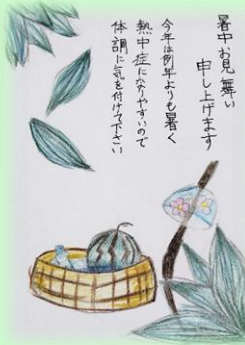 暑中お見舞い
申し上げます
今年は例年よりも暑く
熱中症になりやすいので
体調に気を付けて下さい